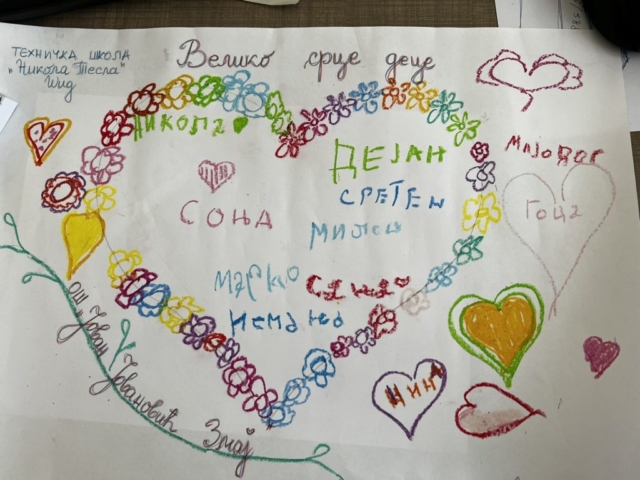 Велико срце деце
ТЕХНИЧКА ШКОЛА
„Никола Тесла"
НИКОЛА
ДЕЈАН
СРЕТЕН
СОЊА
МИЛАН
МАРКО
НЕМАЊА
ГОЦА
НИНА
ОШ „Јован Јовановић
Змај